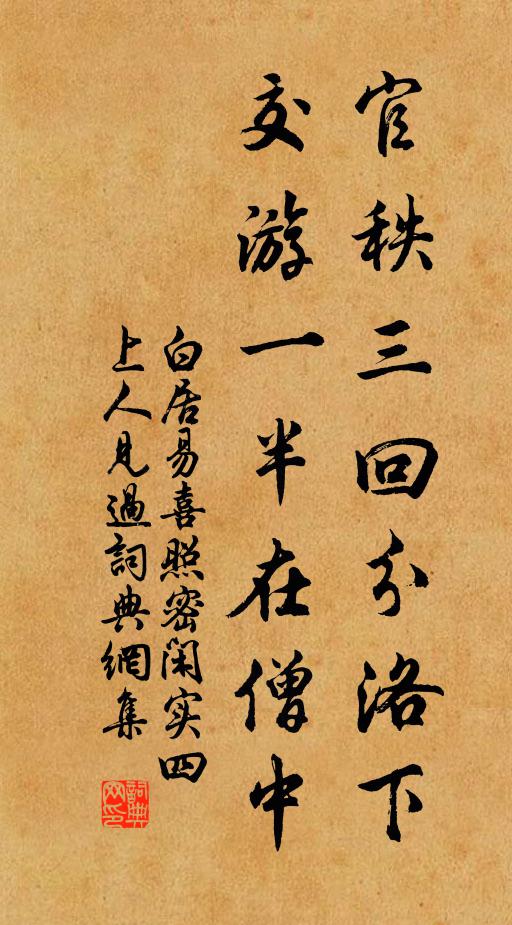 官秩三回分洛下
交游一半在僧中
白居易喜照密闲实四
上人见過詞典網集
詞典
网印